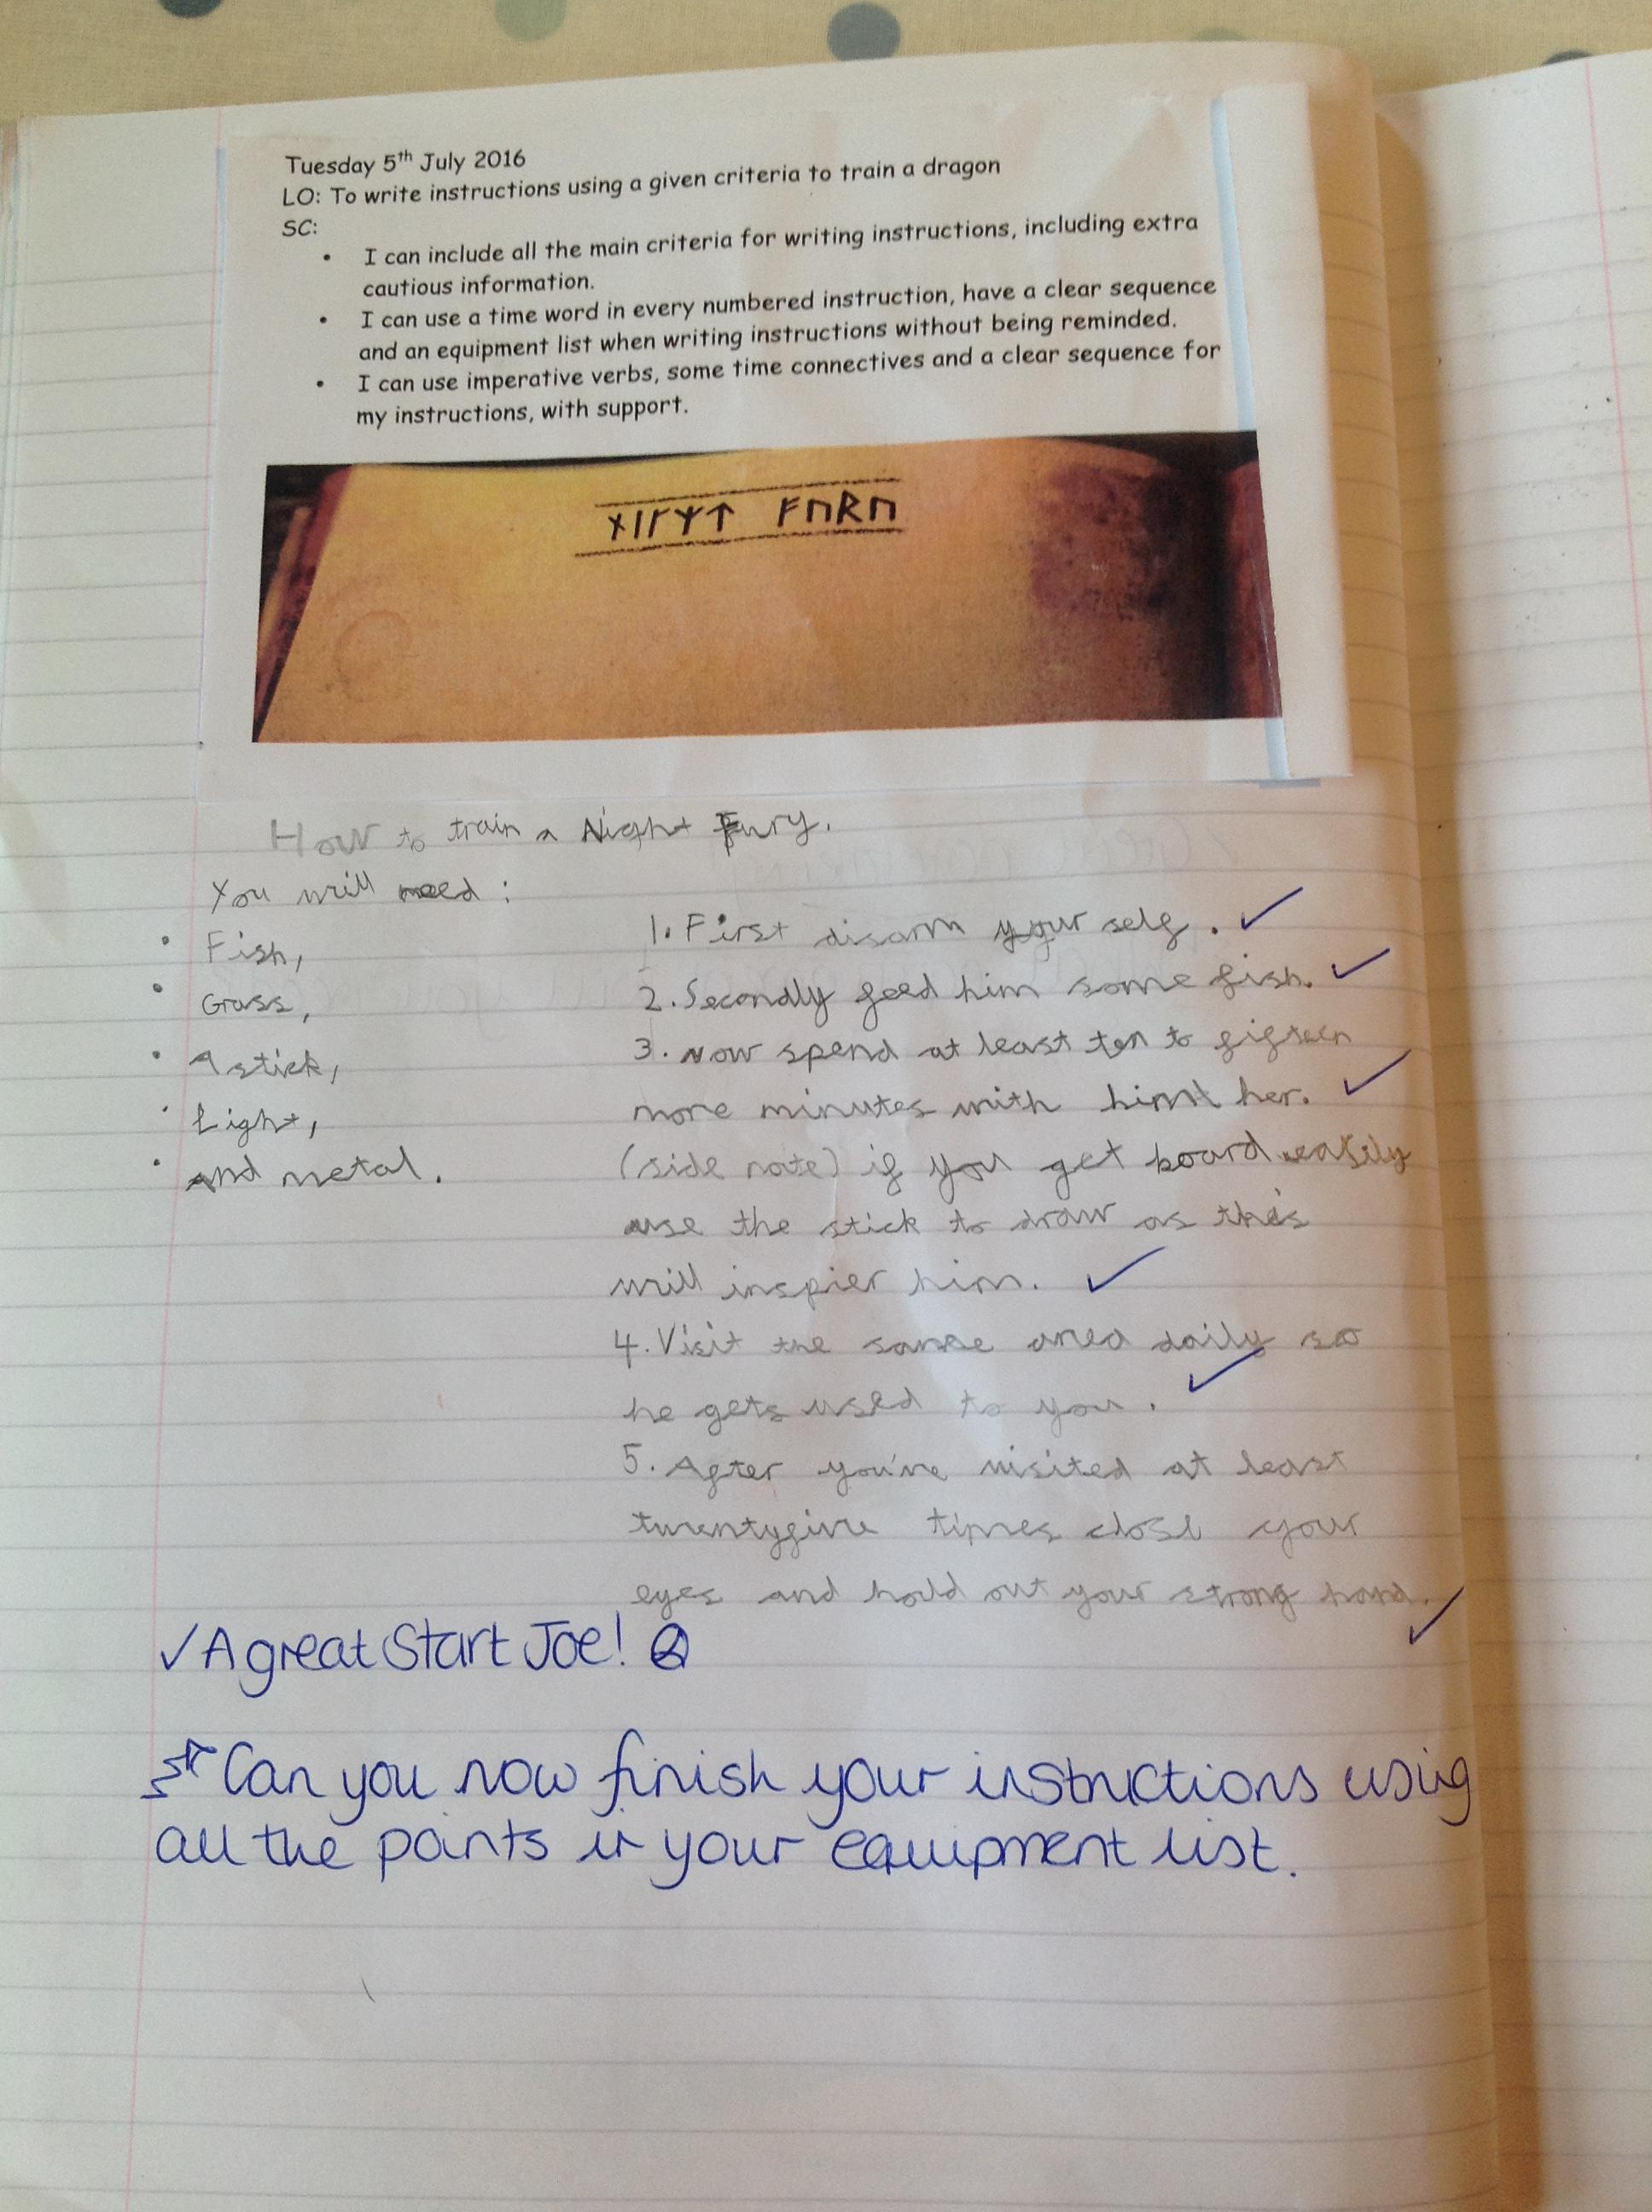 Tuesday 5th July 2016
LO: To write instructions using a given criteria to train a dragon
SC:
• I can include all the main criteria for writing instructions, including extra
cautious information.
• I can use a time word in every numbered instruction, have a clear sequence
and an equipment list when writing instructions without being reminded.
• I can use imperative verbs, some time connectives and a clear sequence for
my instructions, with support.
How to train a Night Fury.
You will need:
• Fish,
• Grass,
• A stick,
• Light,
• and metal.
1. First disarm your self.
2. Secondly feed him some fish.
3. Now spend at least ten to fifteen
more minutes with him\ her.
(side note) if you get board easily
use the stick to draw as this
will inspier him.
4. Visit the same area daily so
he gets used to you.
5. After you've visited at least
twentyfive times close your
eyes and hold out your strong hand.
✓A great Start Joe!
Can you now finish your instructions using
all the points in your equipment list.